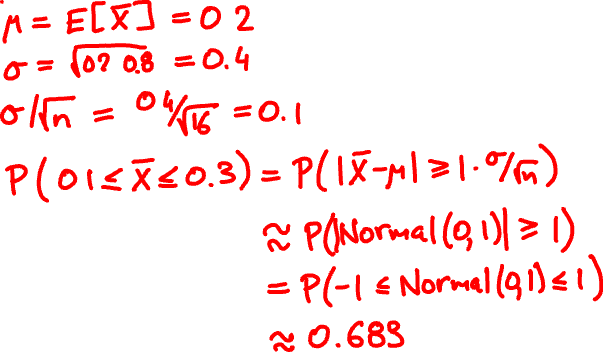 μ = E[X̄] = 0 2
σ = √(0? 0.8) = 0.4
σ/√n = 0 4/√16 = 0.1
P(0 1 ≤ X̄ ≤ 0.3) = P(|X̄-μ| ≥ 1·σ/√n)
≈ P(|Normal(0,1)| ≥ 1)
= P(-1 ≤ Normal(0,1) ≤ 1)
≈ 0.683